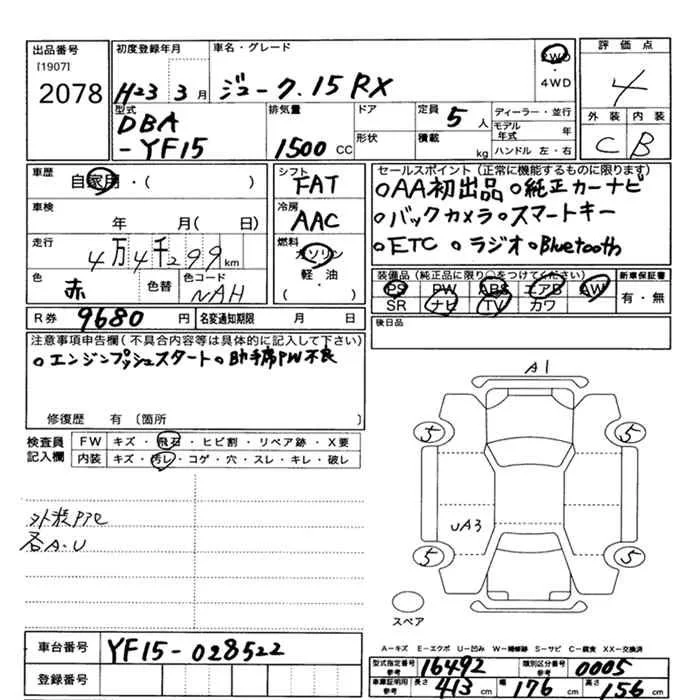 出品番号 初度登録年月 車名・グレード 2WD・4WD 評価点
[1907]
2078 H23 3月 ジューク.15RX 4
型式 排気量 ドア 定員 5人 ディーラー・並行 外装 内装
DBA-YF15 1500cc 形状 積載 kg モデル年式 年 C B
ハンドル 左・右
車歴 自家用・( ) シフト FAT セールスポイント(正常に機能するものに限ります)
○AA初出品 ○純正カーナビ
車検 年 月( 日) 冷房 AAC
○バックカメラ ○スマートキー
走行 4万4千299km 燃料 ガソリン 軽・油 ・( )
○ETC ○ラジオ ○Bluetooth
色 赤 色替 色コード NAH
装備品(純正品に限り○をつけてください) 新車保証書
PS PW ABS エアB AW 有・無
SR ナビ TV カワ
R券 9680円 名変通知期限 月 日 後日品
注意事項申告欄(不具合内容等は具体的に記入して下さい)
○エンジンプッシュスタート ○助手席PW不良
修復歴 有〔箇所
検査員記入欄 FW キズ・飛石・ヒビ割・リペア跡・X要
内装 キズ・汚レ・コゲ・穴・スレ・キレ・破レ
A1
5 5
外装
各A・U
UA3
5 5
スペア
A-キズ E-エクボ U-凹み W-補修跡 S-サビ C-腐食 XX-交換済
車台番号 YF15-028522
登録番号
型式指定番号 参考 16492 類別区分番号 参考 0005
車庫証明用 参考 長さ 413cm 幅 176cm 高さ 156cm